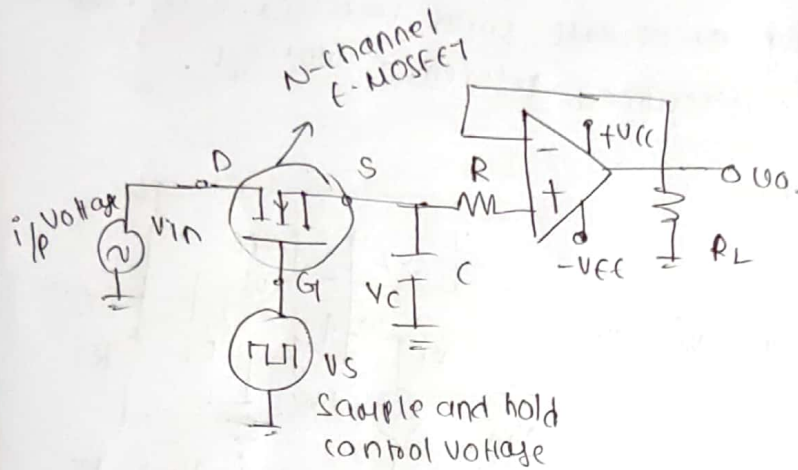 N-channel
E-MOSFET
D
S
R
-
+
+VCC
VO.
i/p Voltage
Vin
G
VC
C
-VEE
RL
VS
Sample and hold
control voltage